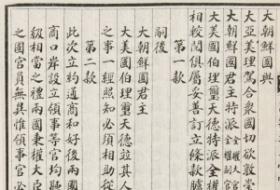 大朝鮮國與
大亞美理駕合衆國切欲敦崇
大朝鮮國君主特派全權大官全權副官
大美國伯理璽天德特派全權
相較閱俱屬妥善訂立條款臚
第一款
嗣後
大朝鮮國君主
大美國伯理璽天德並其人
之事一經照知必須相助從
第二款
此次立約通商和好後兩國
商口岸設立領事等官均聽
級相當之禮兩國秉權大臣
之國官員無異惟領事官必